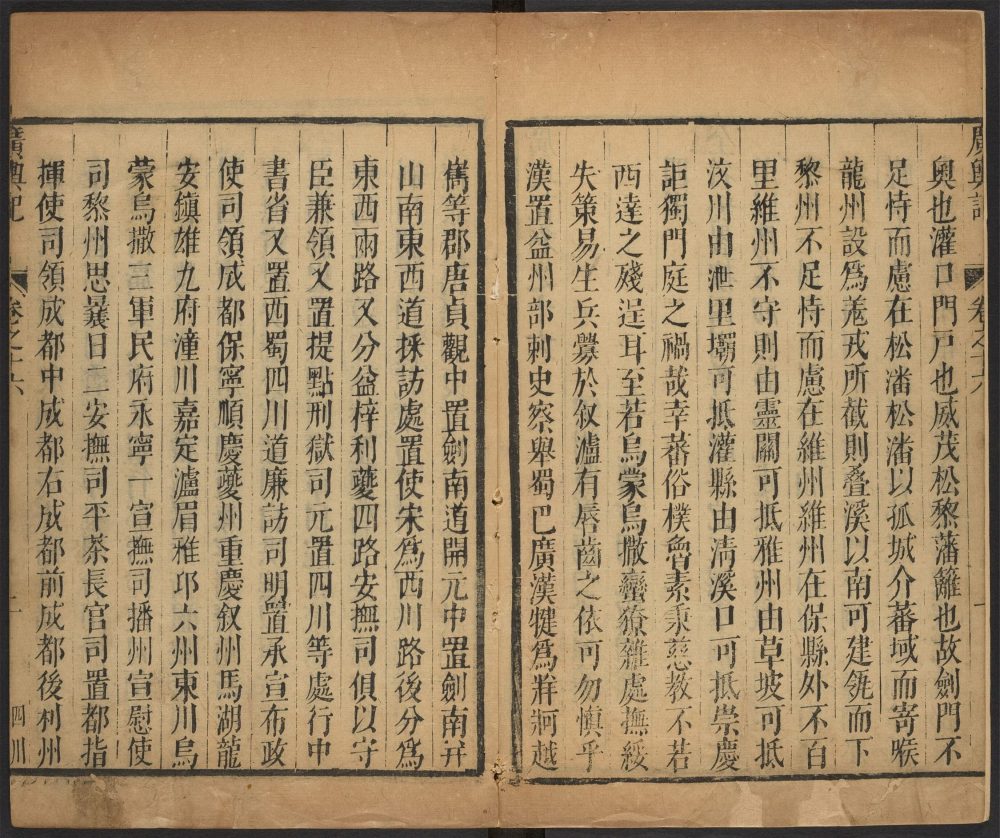 廣輿記 卷之十六 一
奧也灌口門戸也威茂松黎藩籬也故劍門不
足恃而慮在松潘松潘以孤城介蕃域而寄喉
龍州設爲羗戎所截則叠溪以南可建瓴而下
黎州不足恃而慮在維州維州在保縣外不百
里維州不守則由靈關可抵雅州由草坡可抵
汶川由泄里壩可抵灌縣由清溪口可抵崇慶
詎獨門庭之禍哉幸蕃俗樸魯素秉慈教不若
西逹之殘逞耳至若烏蒙烏撒蠻獠雜處撫綏
失策易生兵釁於叙瀘有唇齒之依可勿慎乎
漢置益州部刺史察舉蜀巴廣漢犍爲牂牁越
雋等郡唐貞觀中置劍南道開元中置劍南幷
山南東西道採訪處置使宋爲西川路後分爲
東西兩路又分益梓利夔四路安撫司俱以守
臣兼領又置提點刑獄司元置四川等處行中
書省又置西蜀四川道廉訪司明置承宣布政
使司領成都保寧順慶夔州重慶叙州馬湖龍
安鎮雄九府潼川嘉定瀘眉雅邛六州東川烏
蒙烏撒三軍民府永寧一宣撫司播州宣慰使
司黎州思曩日二安撫司平茶長官司置都指
揮使司領成都中成都右成都前成都後利州
廣輿記 卷之十六 二 四川